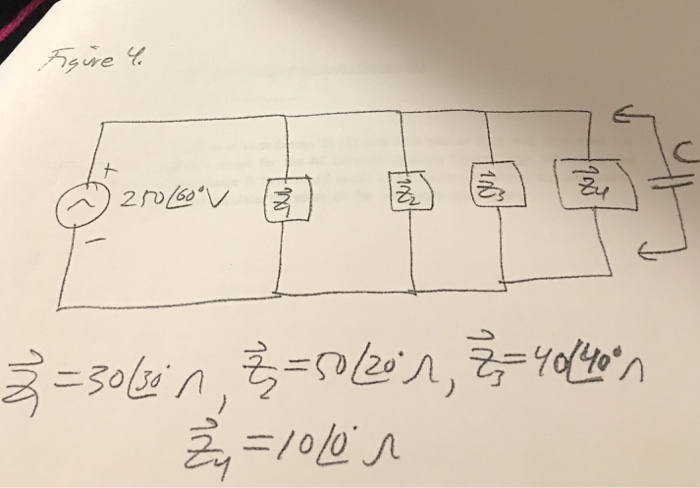 Figure 4.
+
250∠60° V
−
Z⃗1 Z⃗2 Z⃗3 Z⃗4 C
Z⃗1 = 30∠30° Ω, Z⃗2 = 50∠20° Ω, Z⃗3 = 40∠40° Ω
Z⃗4 = 10∠0° Ω